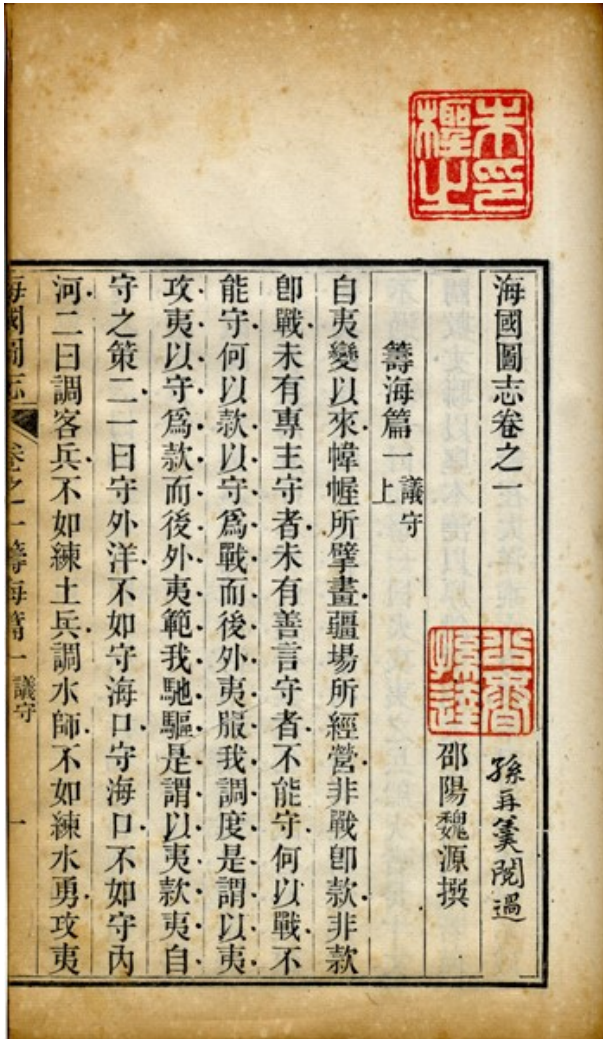 朱檉之印
海國圖志卷之一
孫再羹閱過
邵陽魏源撰
籌海篇一議守上
自夷變以來幃幄所擘畫疆場所經營非戰卽款非款
卽戰未有專主守者未有善言守者不能守何以戰不
能守何以款以守爲戰而後外夷服我調度是謂以夷
攻夷以守爲款而後外夷範我馳驅是謂以夷款夷自
守之策二一曰守外洋不如守海口守海口不如守內
河二曰調客兵不如練土兵調水師不如練水勇攻夷
海國圖志 卷之一籌海篇一議守 一